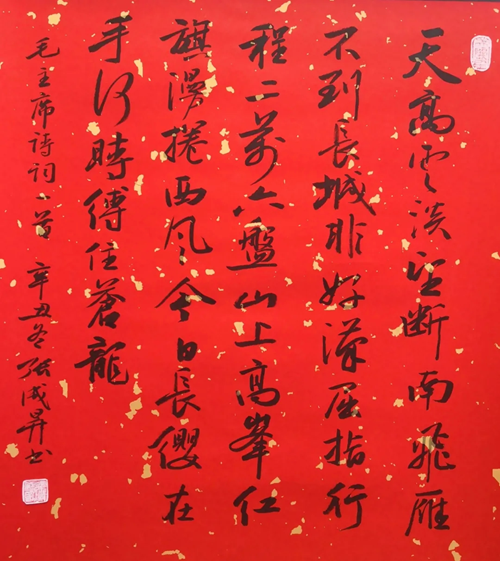 天高雲淡望断南飛雁
不到長城非好漢屈指行
程二萬六盤山上高峯紅
旗漫捲西风今日長纓在
手何時縛住蒼龍
毛主席詩詞一首 辛丑冬張成昇书